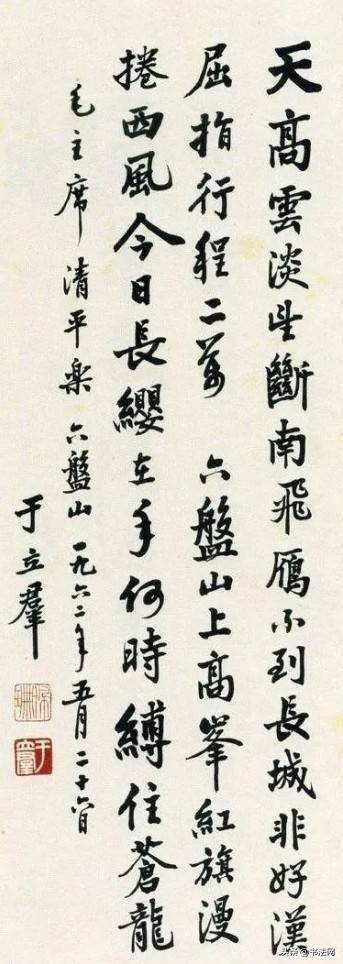 天高雲淡望斷南飛鴈不到長城非好漢
屈指行程二萬 六盤山上高峯紅旗漫
捲西風今日長纓在手何時縛住蒼龍
毛主席清平樂 六盤山 一九六二年五月二十六日
于立羣
于立羣
头条 @书法网